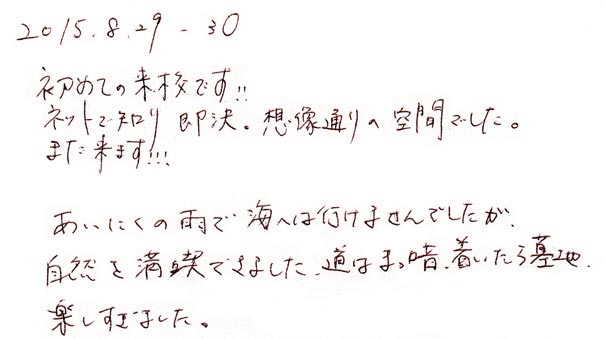 2015.8.29 - 30
初めての来校です!!
ネットで知り 即決。想像通りの空間でした。
また来ます!!!
あいにくの雨で海へは行けませんでしたが、
自然を満喫できました、道はまっ暗、着いたら墓地、
楽しすぎました。